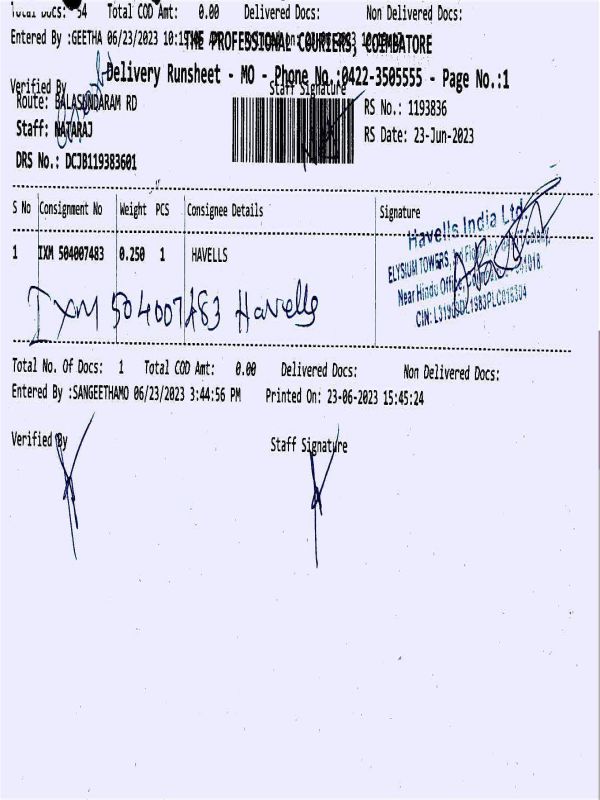 Total Docs: 54 Total COD Amt: 0.00 Delivered Docs: Non Delivered Docs:
Entered By :GEETHA 06/23/2023
THE PROFESSIONAL COURIERS, COIMBATORE
Delivery Runsheet - MO - Phone No.:0422-3505555 - Page No.:1
Verified By Staff Signature
Route: BALASUNDARAM RD RS No.: 1193836
Staff: NATARAJ RS Date: 23-Jun-2023
DRS No.: DCJB119383601
S No Consignment No Weight PCS Consignee Details Signature
1 IXM 504007483 0.250 1 HAVELLS
Havells India Ltd.
ELYSIUM TOWERS,
Near Hindu Office,
CIN:
IXM 504007483 Havells
Total No. Of Docs: 1 Total COD Amt: 0.00 Delivered Docs: Non Delivered Docs:
Entered By :SANGEETHAMO 06/23/2023 3:44:56 PM Printed On: 23-06-2023 15:45:24
Verified By Staff Signature